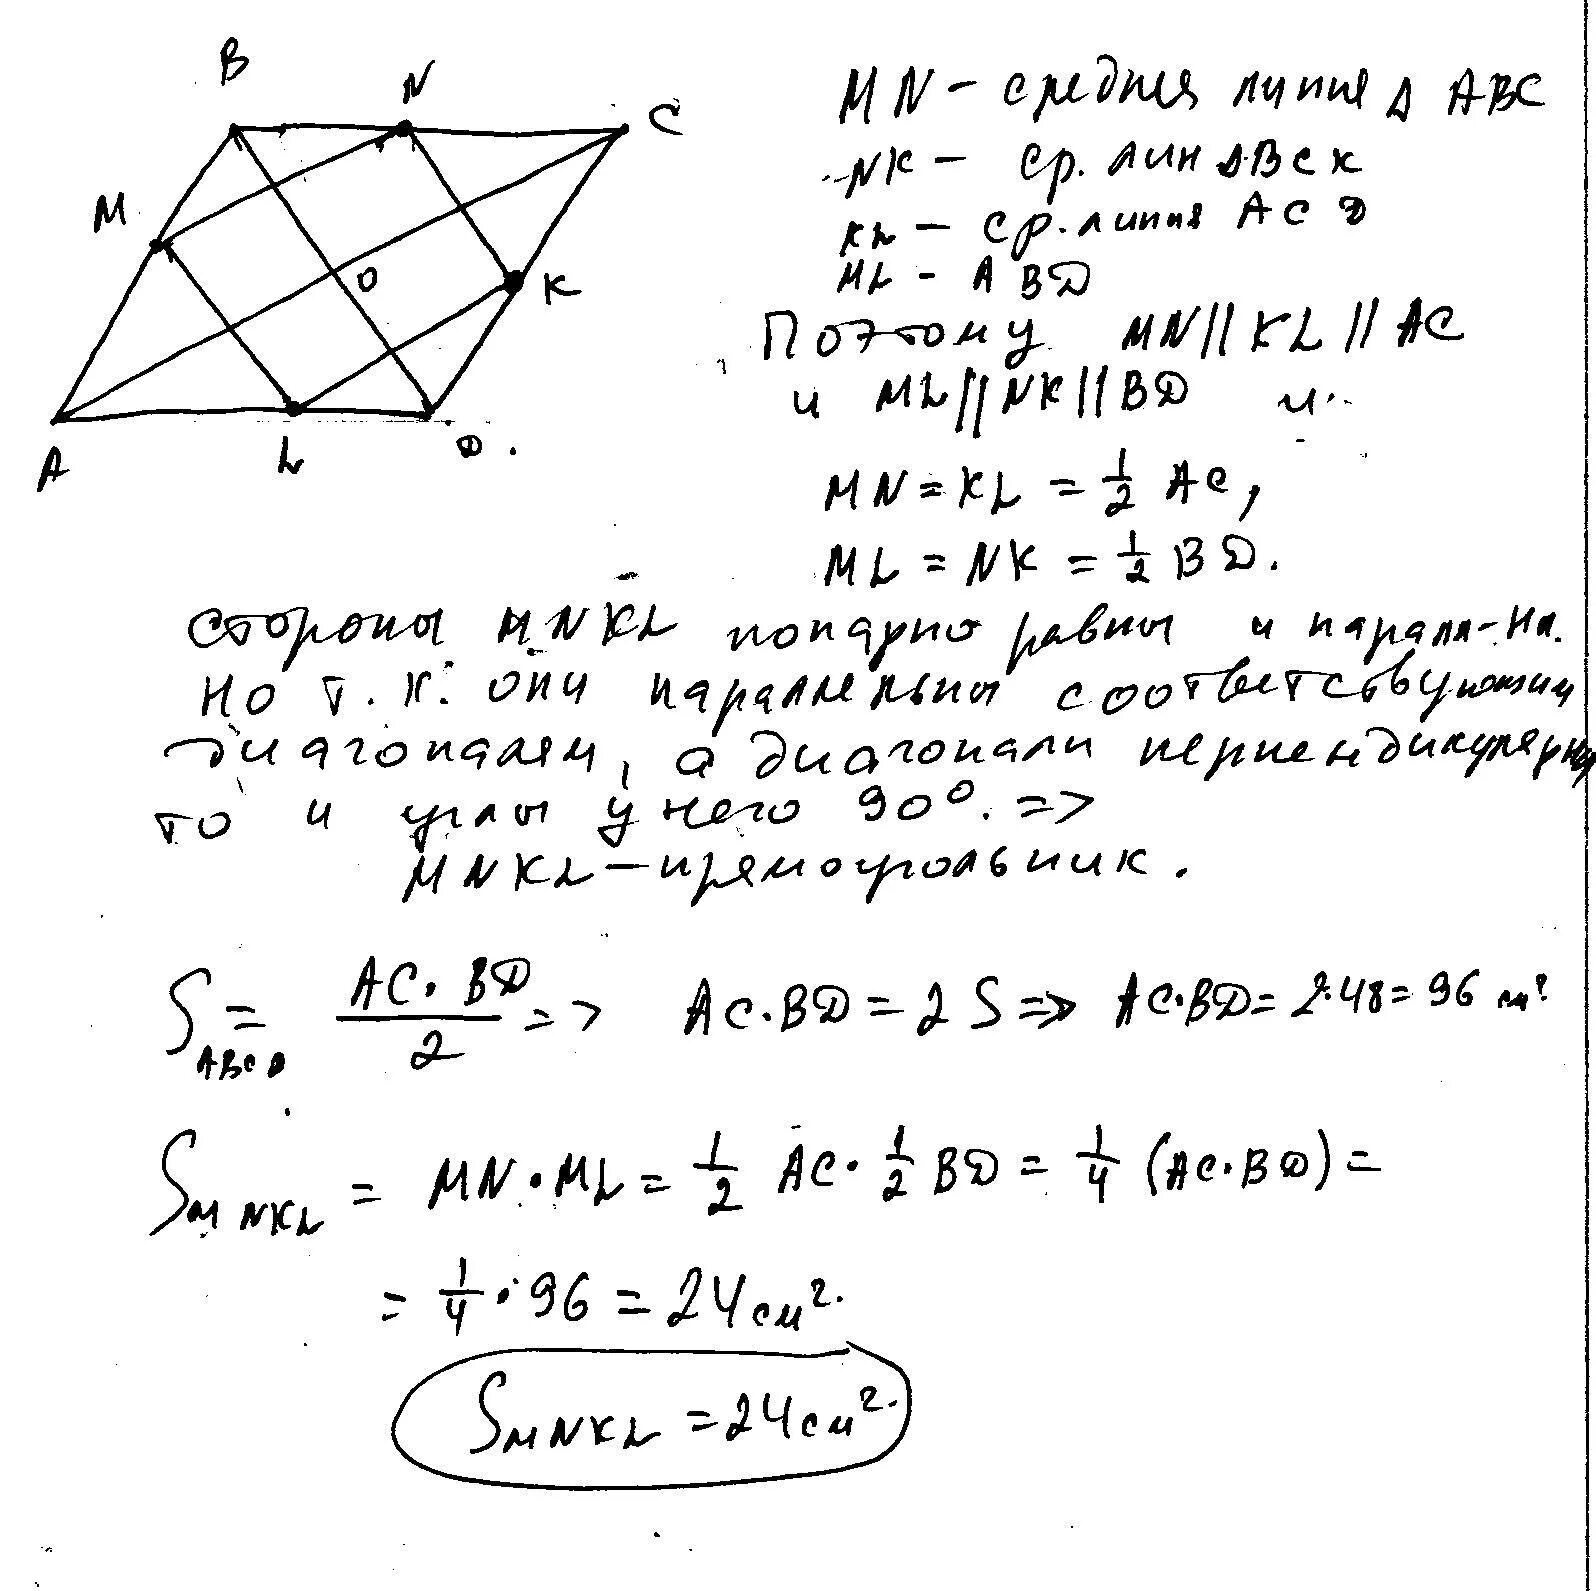 B
N
C
M
O
K
A
L
D.
MN - средняя линия Δ ABC
NK - ср. лин Δ BCK
KL - ср. линия ACD
ML - ABD
Поэтому MN || KL || AC
и ML || NK || BD и
MN = KL = 1/2 AC,
ML = NK = 1/2 BD.
Стороны MNKL попарно равны и паралл-ны.
Но т.к. они параллельны соответствующим
диагоналям, а диагонали перпендикулярны
то и углы у него 90°. =>
MNKL - прямоугольник.
S ABCD = AC·BD/2 => AC·BD = 2S => AC·BD = 2·48 = 96 см²
S MNKL = MN·ML = 1/2 AC · 1/2 BD = 1/4 (AC·BD) =
= 1/4 · 96 = 24 см².
S MNKL = 24 см².